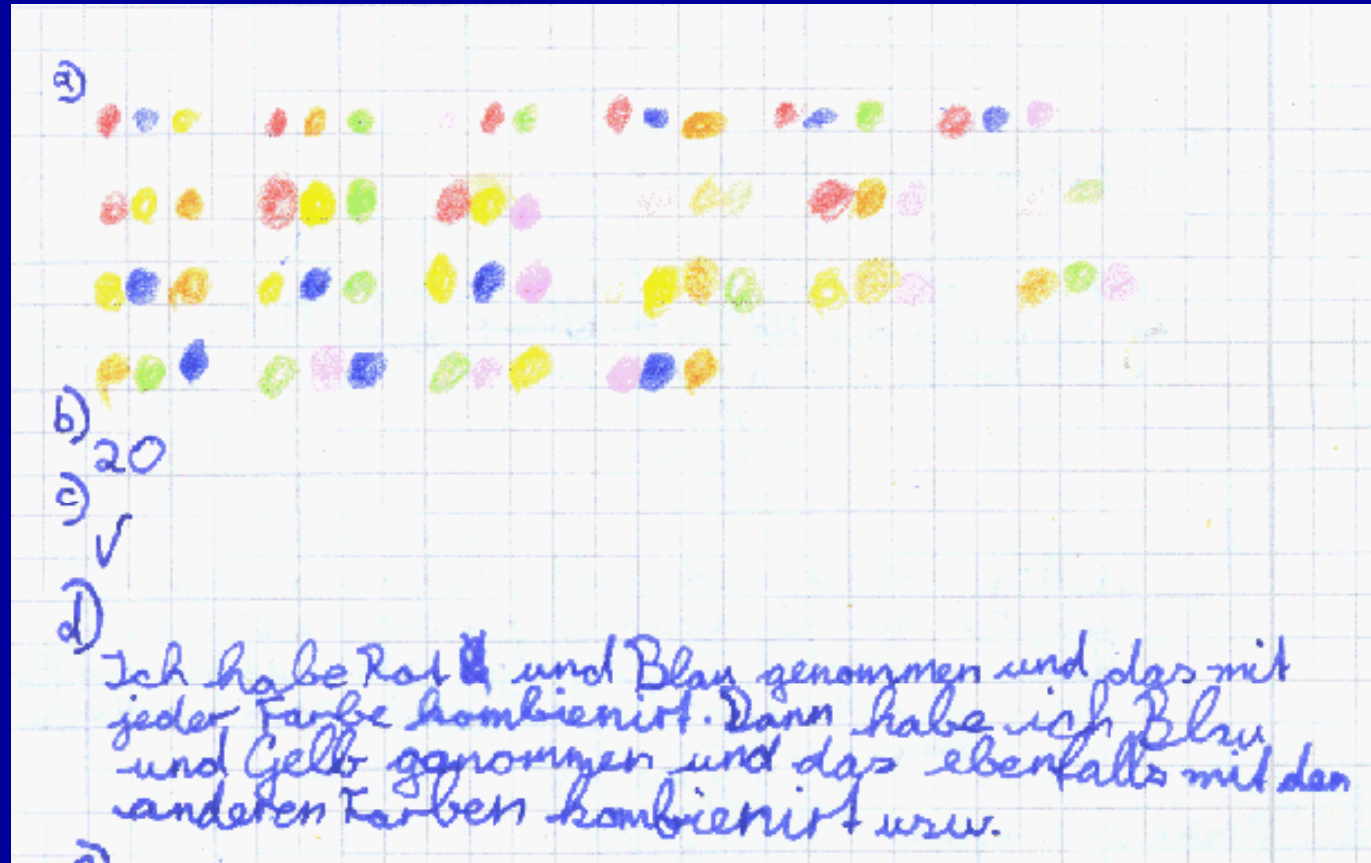 a)
b)
20
c)
√
d)
Ich habe Rot und Blau genommen und das mit
jeder Farbe kombienirt. Dann habe ich Blau
und Gelb genommen und das ebenfalls mit den
anderen Farben kombienirt usw.